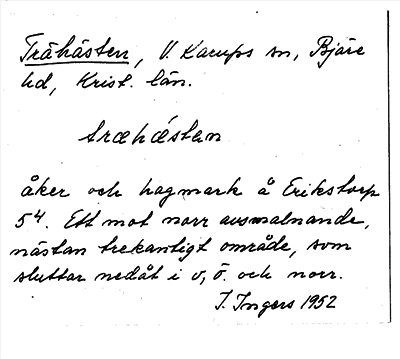 Trähästen, V. Karups sn, Bjäre
hd, Krist. län.
træhæstan
åker och hagmark å Erikstorp
5⁴. Ett mot norr avsmalnande,
nästan trekantigt område, som
sluttar nedåt i v, ö. och norr.
I. Ingers 1952